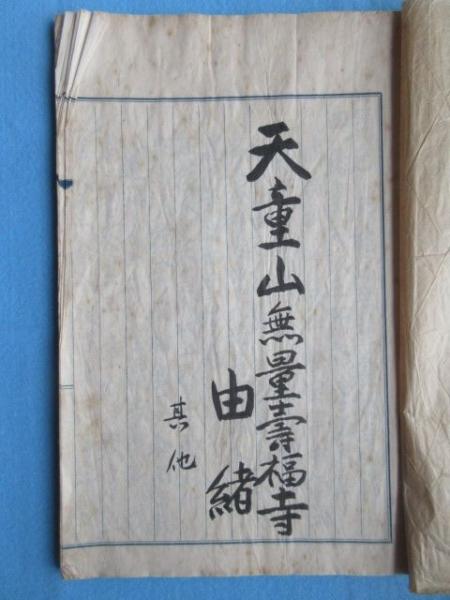 天童山無量壽福寺
由緒
其他